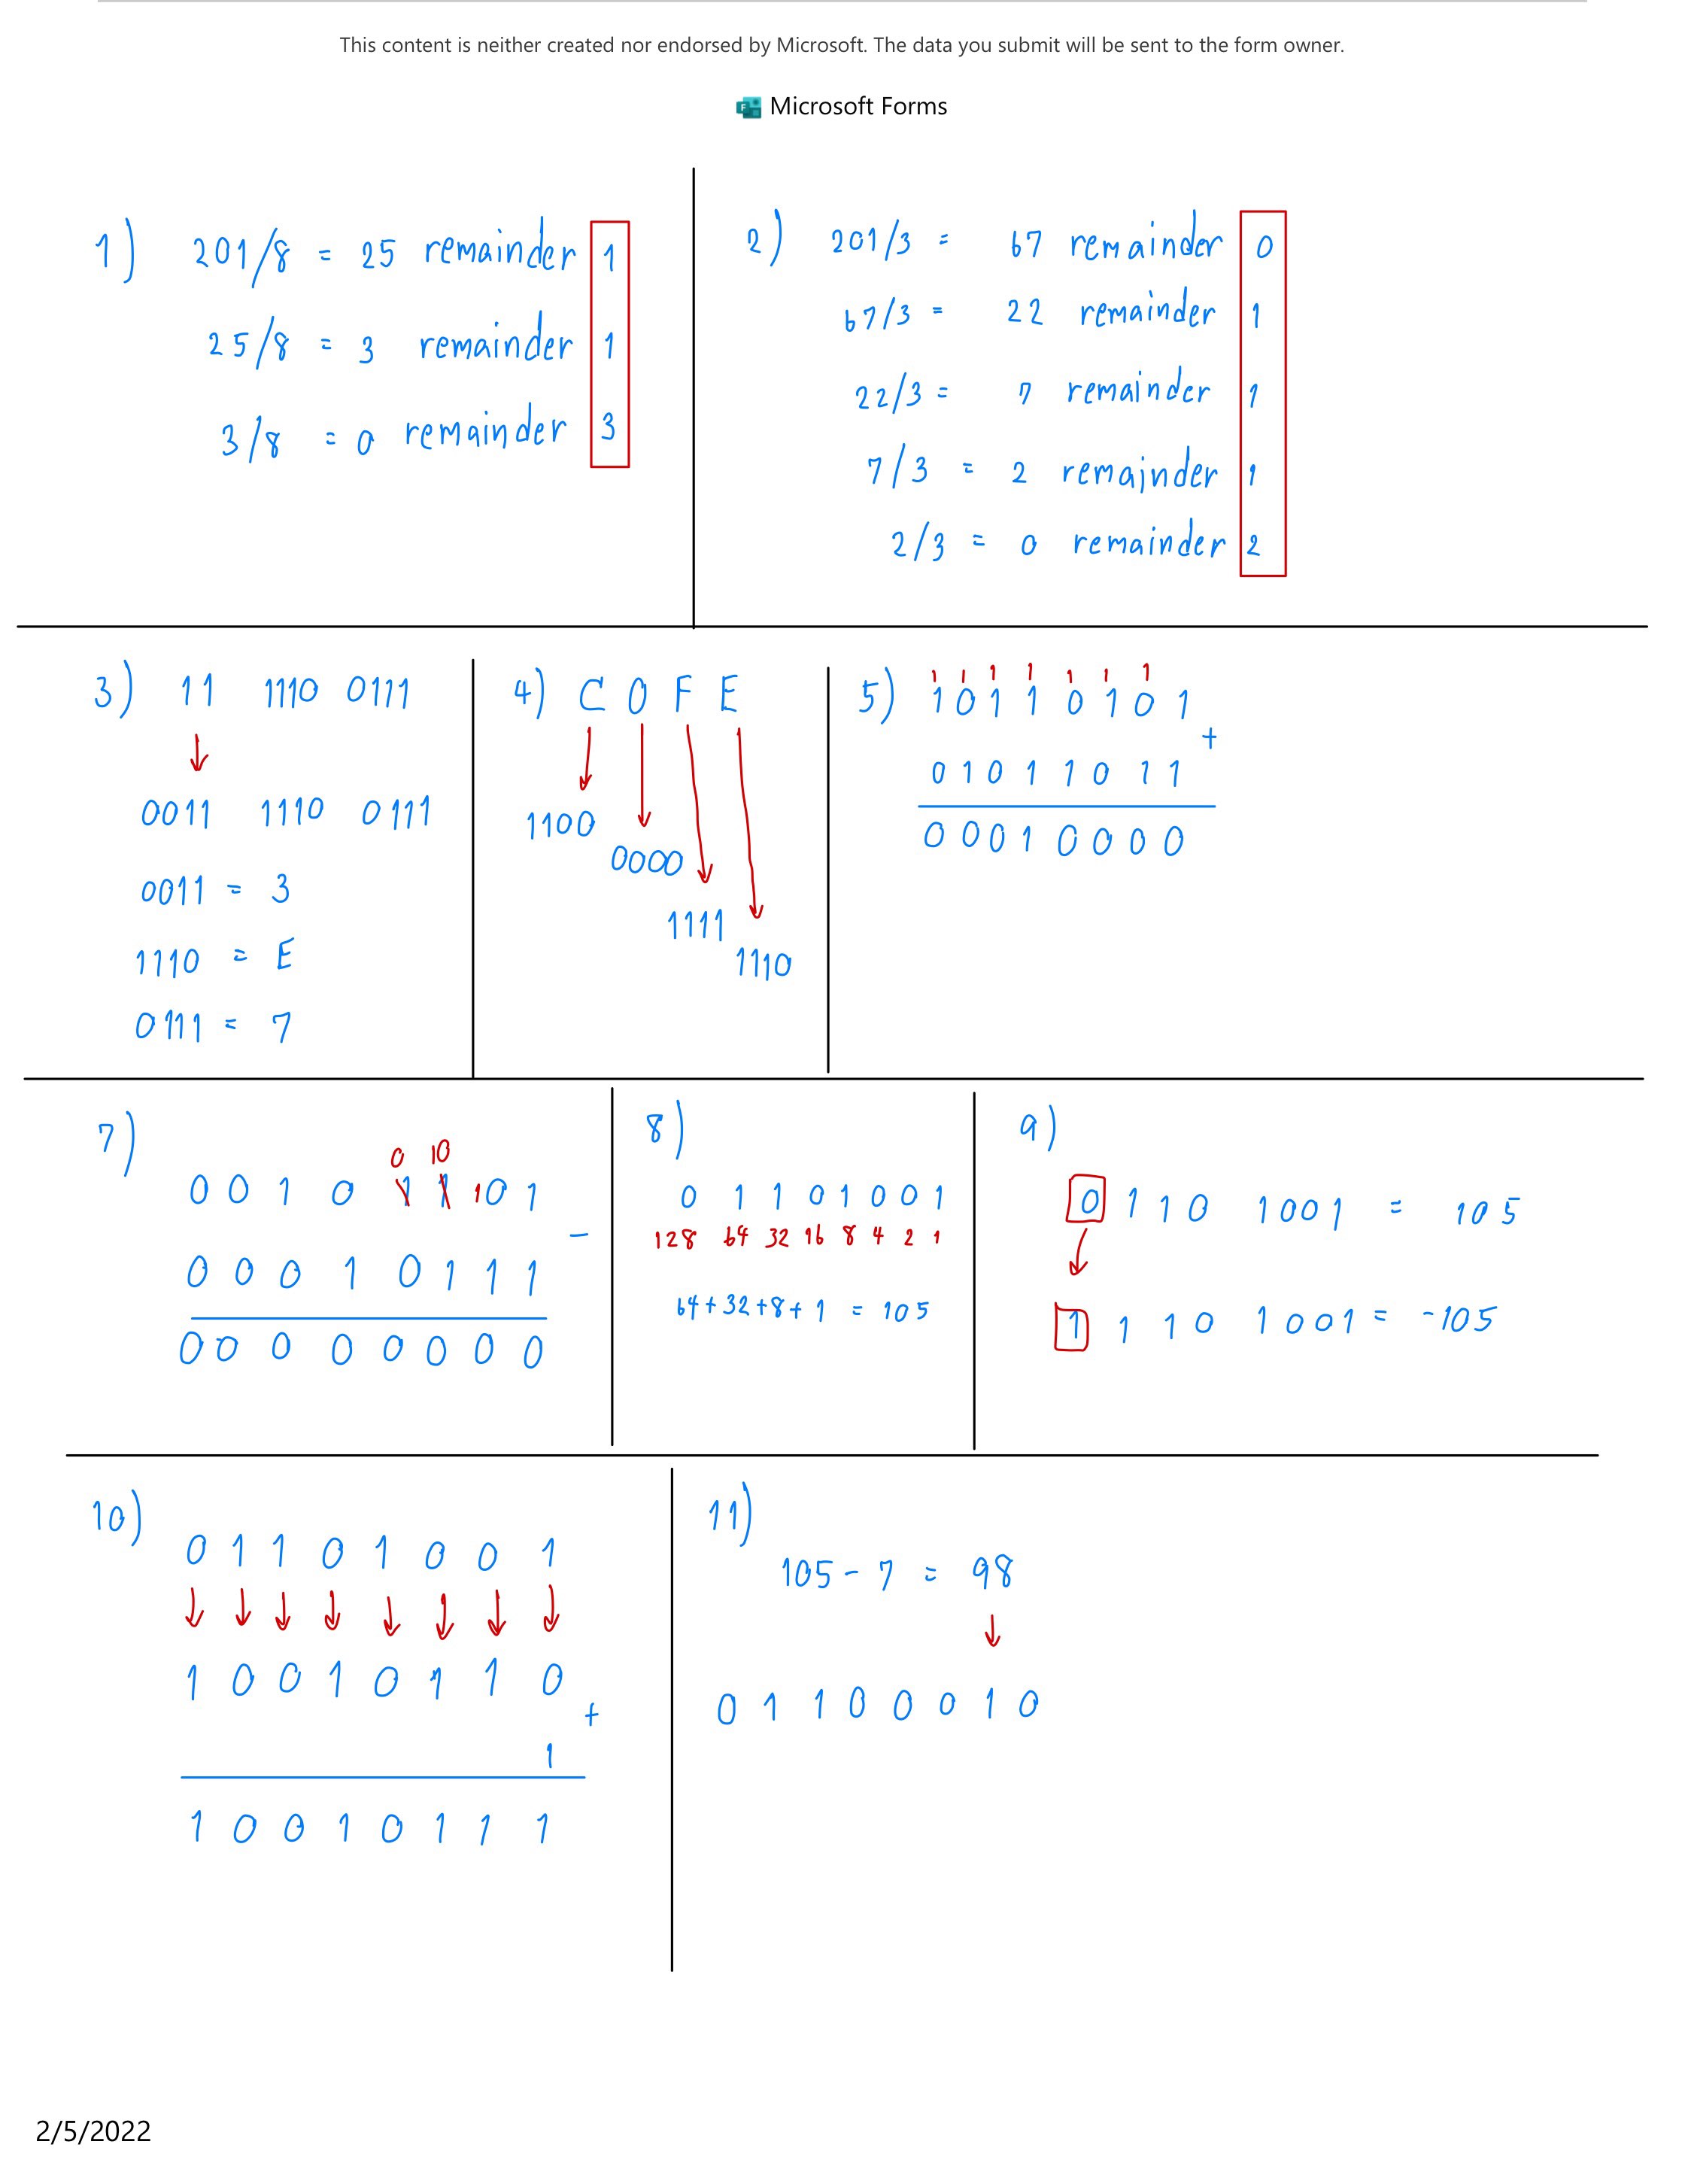 This content is neither created nor endorsed by Microsoft. The data you submit will be sent to the form owner.
Microsoft Forms
1) 201/8 = 25 remainder 1
25/8 = 3 remainder 1
3/8 = 0 remainder 3
2) 201/3 = 67 remainder 0
67/3 = 22 remainder 1
22/3 = 7 remainder 1
7/3 = 2 remainder 1
2/3 = 0 remainder 2
3) 11 1110 0111
0011 1110 0111
0011 = 3
1110 = E
0111 = 7
4) C 0 F E
1100
0000
1111
1110
5) 1 1 1 1 1 1 1
1 0 1 1 0 1 0 1
+
0 1 0 1 1 0 1 1
0 0 0 1 0 0 0 0
7)
0 10
0 0 1 0 1 1 1 0 1
-
0 0 0 1 0 1 1 1
0 0 0 0 0 0 0 0
8)
0 1 1 0 1 0 0 1
128 64 32 16 8 4 2 1
64 + 32 + 8 + 1 = 105
9)
0 1 1 0 1001 = 105
1 1 1 0 1001 = -105
10)
0 1 1 0 1 0 0 1
1 0 0 1 0 1 1 0
+
1
1 0 0 1 0 1 1 1
11)
105 - 7 = 98
0 1 1 0 0 0 1 0
2/5/2022